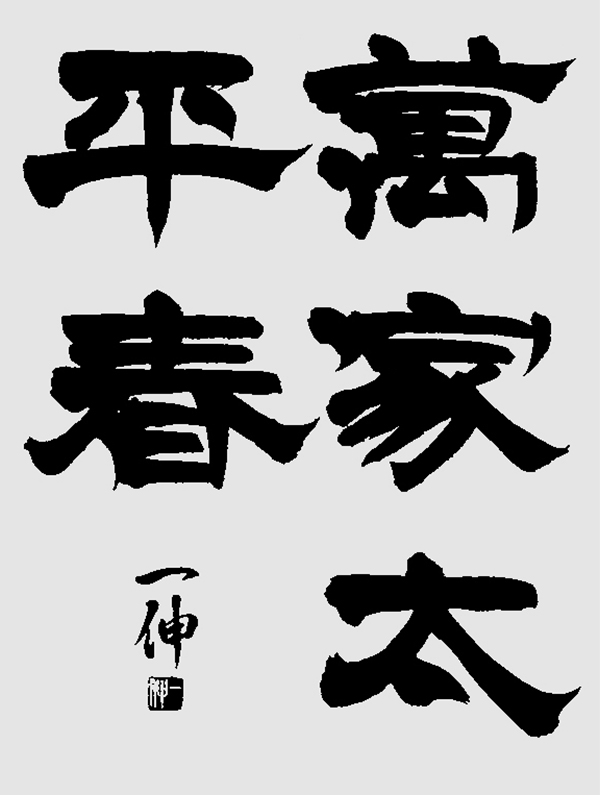 萬家太
平春
一伸
一伸